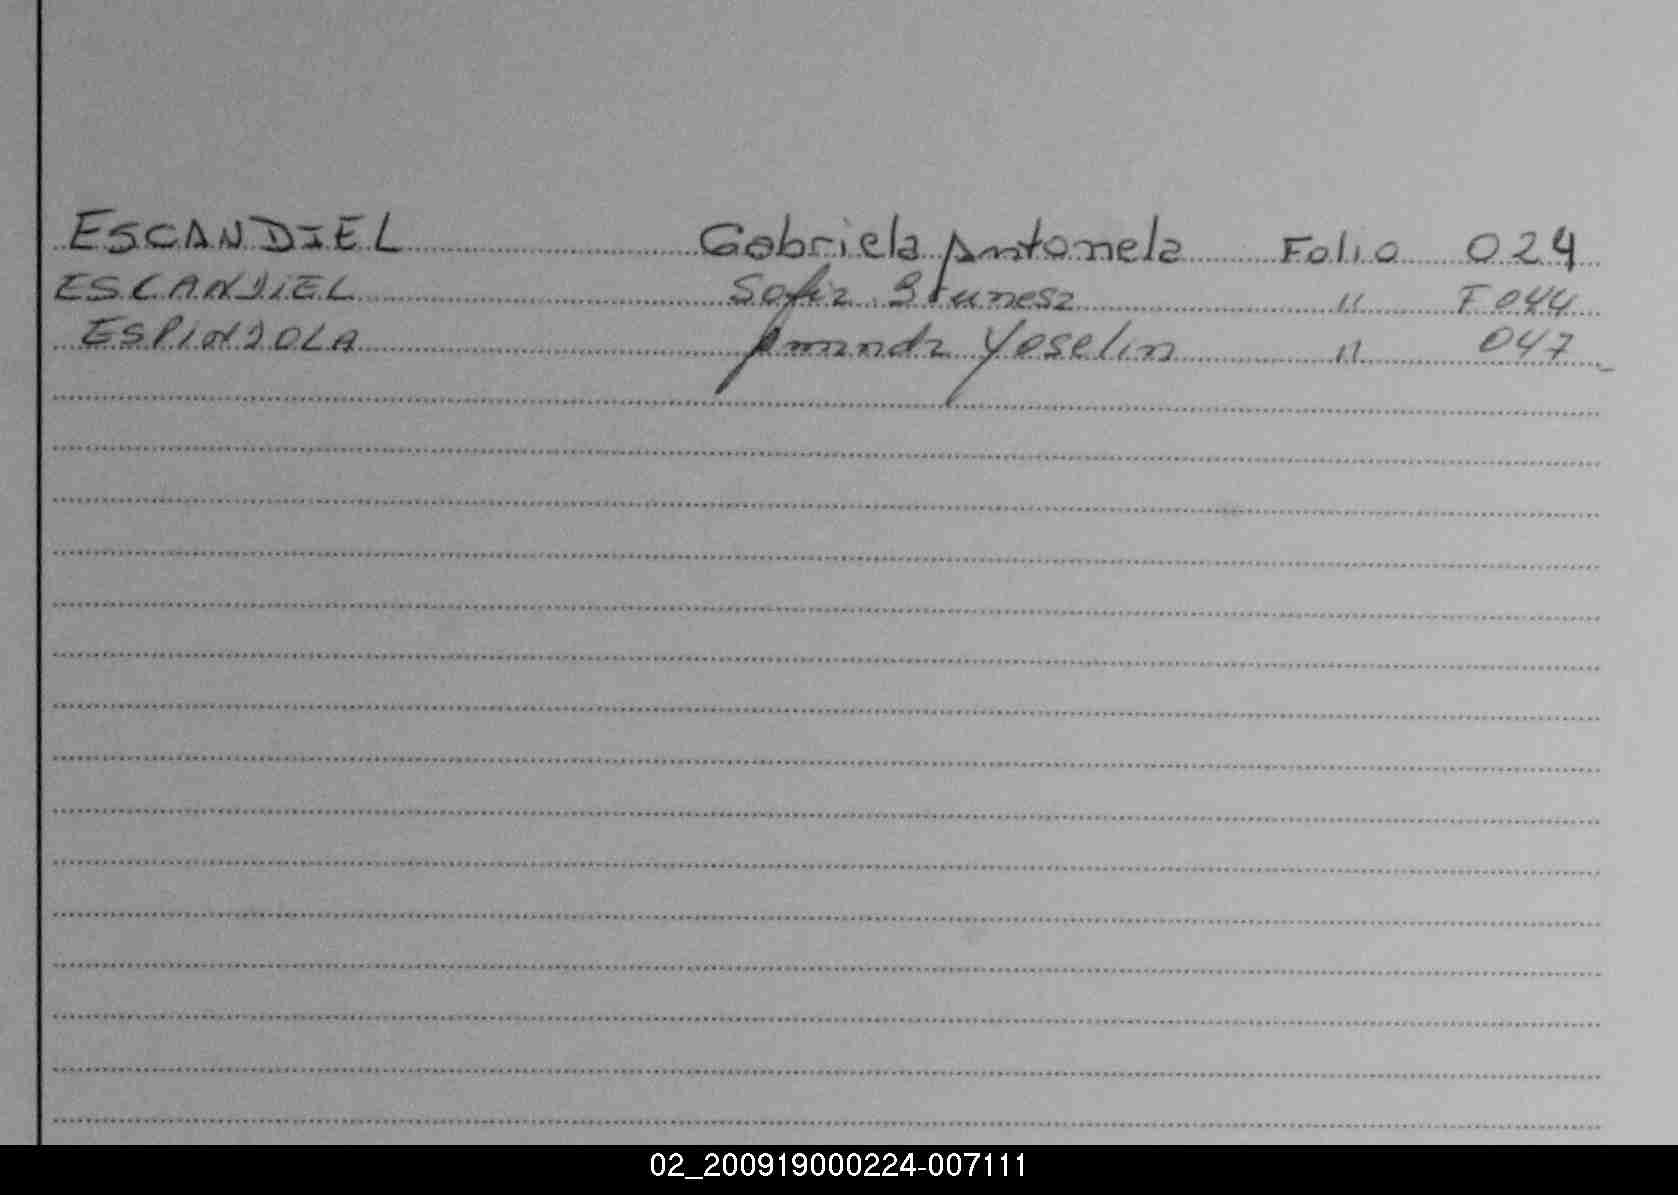 ESCANDIEL Gabriela Antonela Folio 024
ESCANDIEL Sofia " F 044
ESPINDOLA Amanda Yoselin " 047
02_200919000224-007111